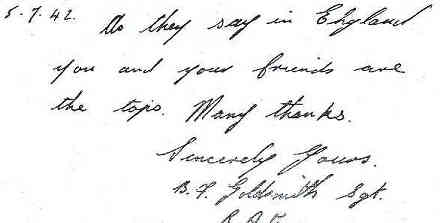 5.7.42. As they say in England
you and your friends are
the tops. Many thanks.
Sincerely Yours.
B. F. Goldsmith Sgt.
R.A.F.